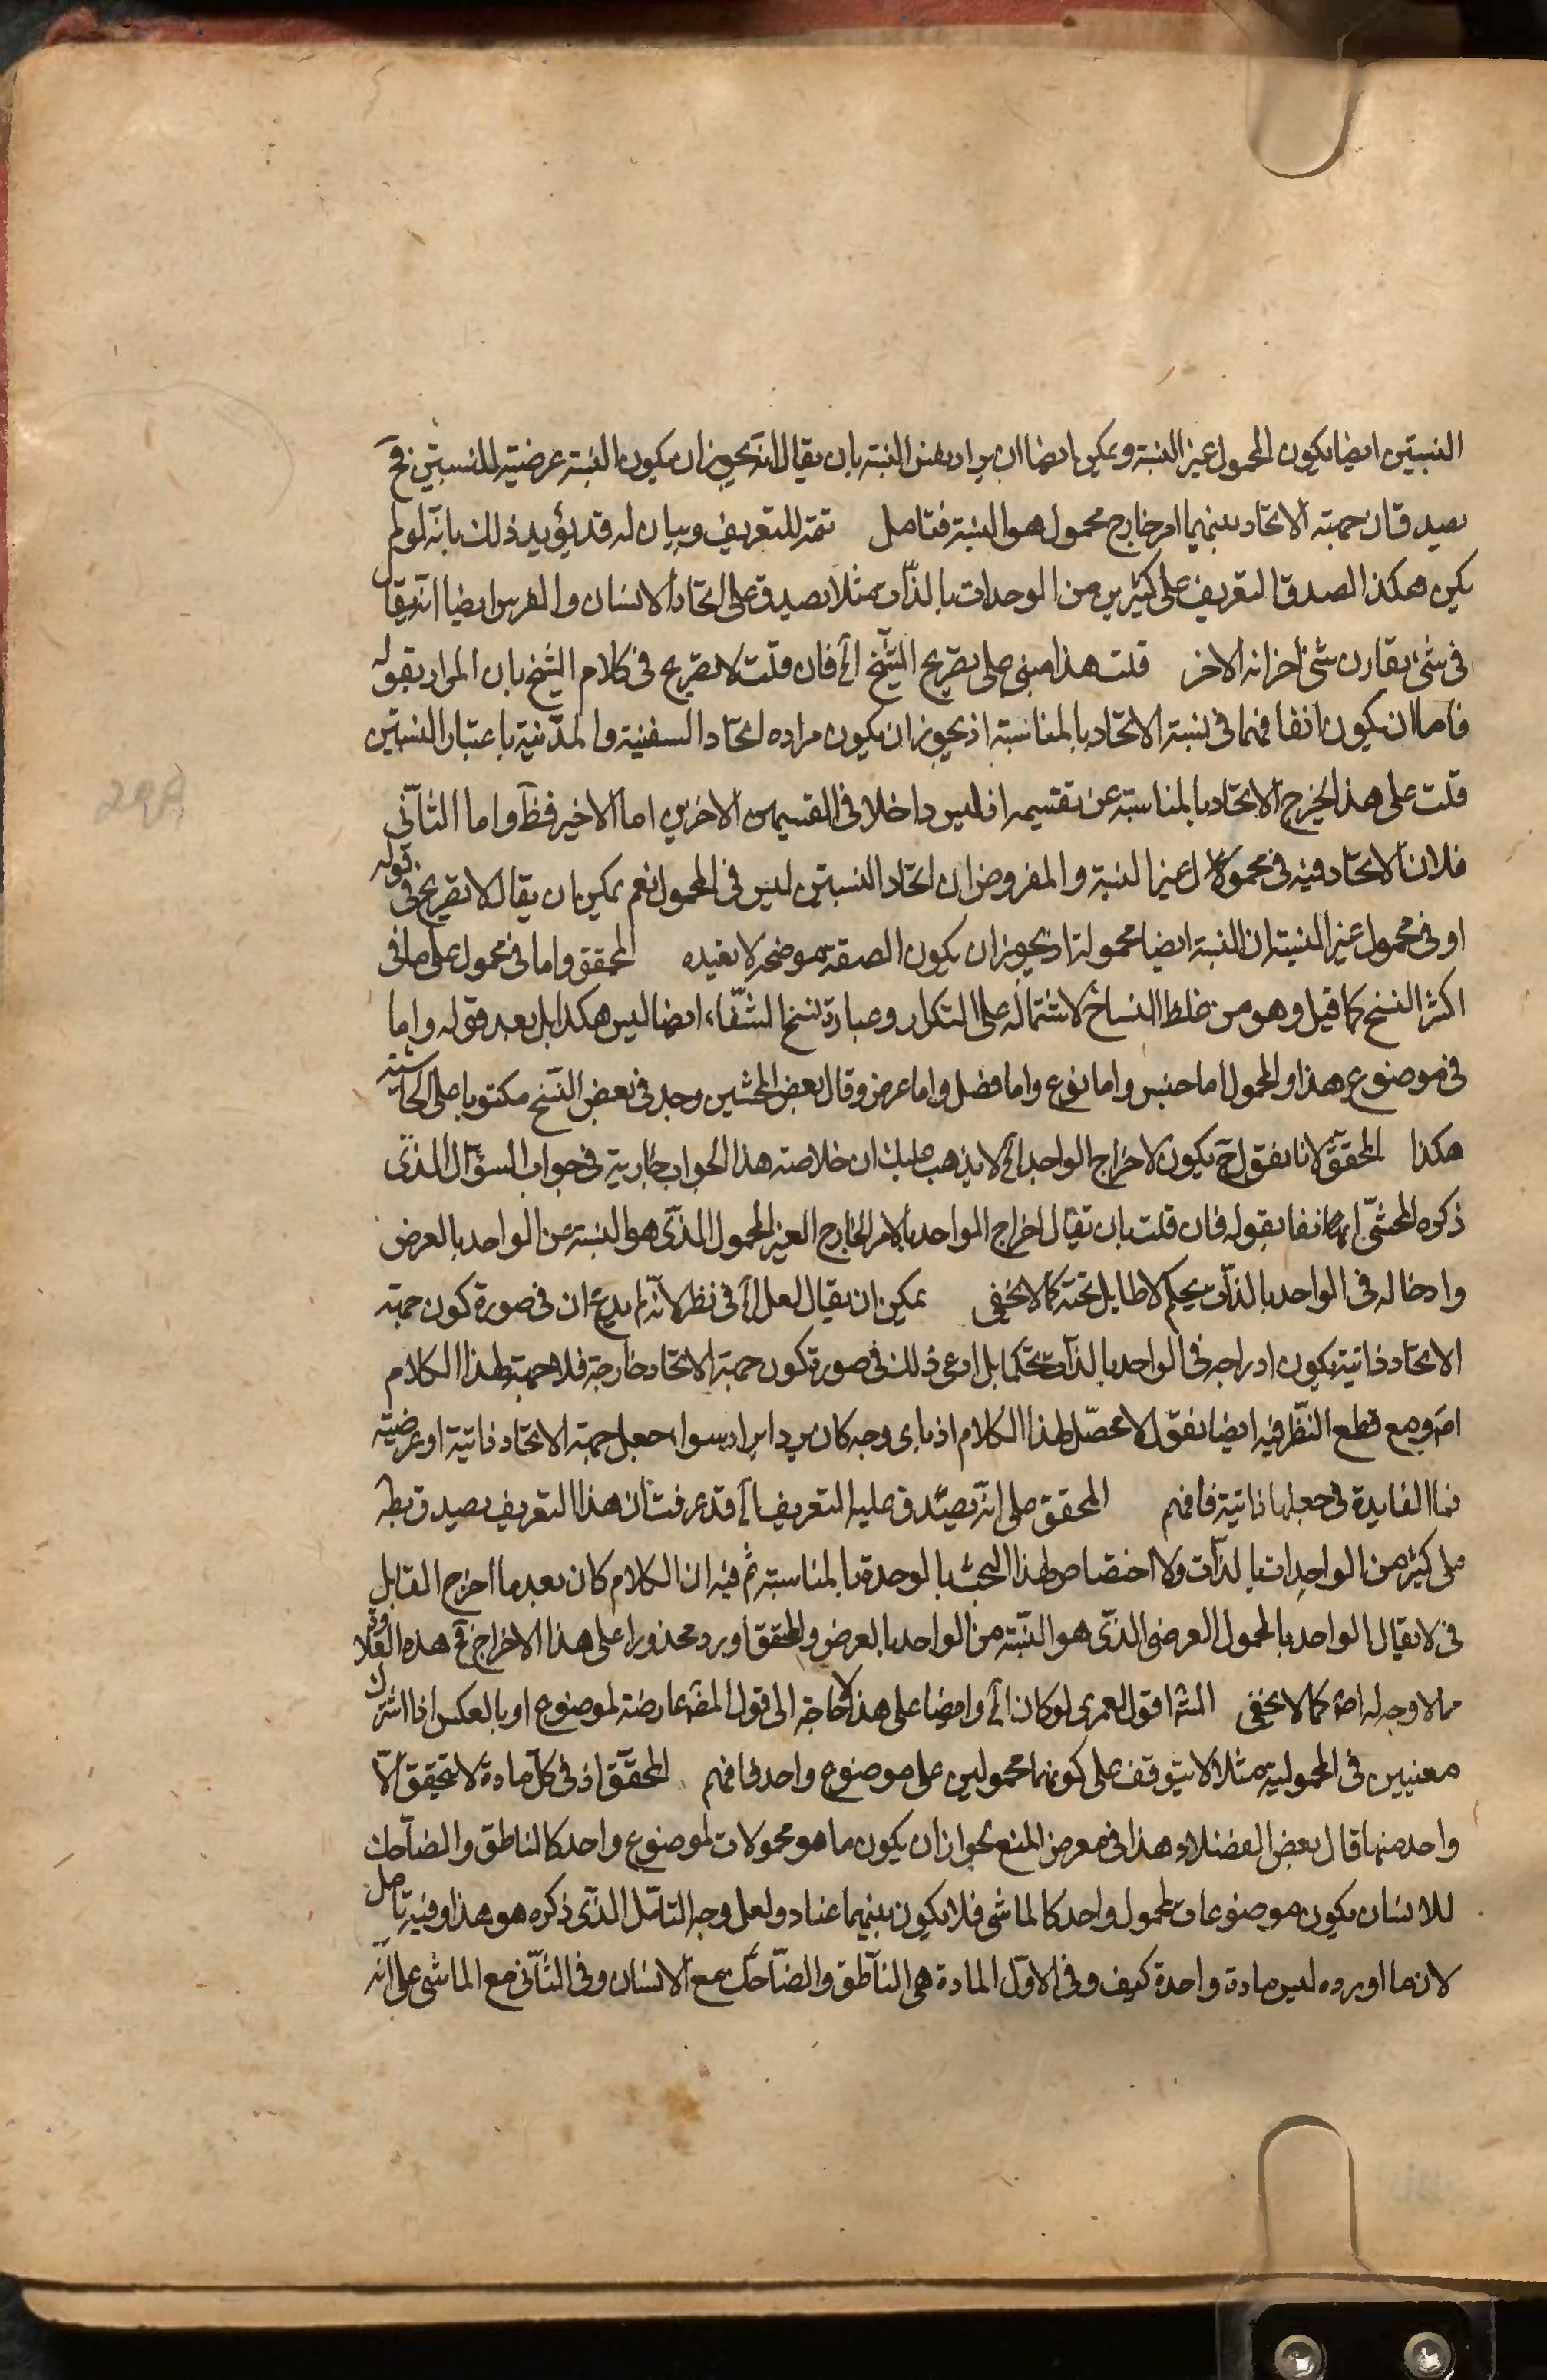 النسبتين ايضا يكون المحمول غير النسبة ويمكن ايضا ان يراد بغير النسبة بان يقال انه يجوز ان يكون النسبة عرضية للنسبتين فح
يصدق ان جهة الاتحاد بينهما امر خارج محمول هو النسبة فتامل تتمة للتعريف وبيان له قد يؤيد ذلك بانه لو لم
يكن هكذا لصدق التعريف على كثيرين من الوحدات بالذات مثلا يصدق على اتحاد الانسان والفرس ايضا انه يقال
فى شئ يقارن شئ اخر انه الاخر قلت هذا مبنى على تصريح الشيخ الخ فان قلت لا تصريح فى كلام الشيخ بان المراد بقوله
فاما ان يكون اتفاقهما فى نسبة الاتحاد بالمناسبة اذ يجوز ان يكون مراده اتحاد السفينة والمدينة باعتبار النسبتين
قلت على هذا يخرج الاتحاد بالمناسبة عن تقسيمه اذ ليس داخلا فى القسيمين الاخرين اما الاخير فظ واما الثانى
فلان الاتحاد فيه فى محمول غير النسبة والمفروض ان اتحاد النسبتين ليس فى المحمول نعم يمكن ان يقال لا تصريح فى قوله
او فى محمول غير النسبة ان النسبة ايضا محمولة اذ يجوز ان يكون الصفة موضحة لا مقيده المحقق واما فى محمول على ما فى
اكثر النسخ كما قيل وهو من غلط النساخ لاشتماله على التكرار وعبارة نسخ الشفاء ايضا ليس هكذا بل بعد قوله واما
فى موضوع هذا والمحمول اما جنس واما نوع واما فصل واما عرض وقال بعض المحشين وجد فى بعض النسخ مكتوبا على الحاشية
هكذا المحقق لانا نقول ح يكون لاخراج الواحد الخ لا يذهب عليك ان خلاصة هذا الجواب جارية فى جواب السؤال الذى
ذكره المحشى انفا بقوله فان قلت بان تقال اخراج الواحد بالامر الخارج الغير المحمول الذى هو النسبة عن الواحد بالعرض
وادخاله فى الواحد بالذات تحكم لا طايل تحته كما لا يخفى يمكن ان يقال لعل الخ فى نظر لانه لم يدع ان فى صورة كون جهة
الاتحاد ذاتية يكون ادراجه فى الواحد بالذات تحكما بل ادعى ذلك فى صورة كون جهة الاتحاد خارجة فلا جهة لهذا الكلام
اصم ومع قطع النظر فيه ايضا نقول لا محصل لهذا الكلام اذ باى وجه كان يرد ايراد سواء جعل جهة الاتحاد ذاتية او عرضية
فما الفايدة فى جعلها ذاتية فافهم المحقق على انه يصدق عليه التعريف الخ قد عرفت ان هذا التعريف يصدق بظ
على كثير من الواحدات بالذات ولا اختصاص لهذا البحث بالوحدة بالمناسبة ثم فيه ان الكلام كان بعد ما اخرج القايل
فى لا يقال الواحد بالمحمول العرضى الذى هو النسبة من الواحد بالعرض والمحقق اورد محذورا على هذا الاخراج فح هذه العلاوة
مما لا وجه له اصم كما لا يخفى الش اقول لعمرى لو كان الخ وايضا على هذا لا حاجة الى قول المص عارضة لموضوع او بالعكس اذ اشتراك
معنيين فى المحمولية مثلا لا يتوقف على كونهما محمولين على موضوع واحد فافهم المحقق اذ فى كل مادة لا يتحقق الا
واحد منها قال بعض الفضلاء وهذا فى معرض المنع لجواز ان يكون ما هو محمولات لموضوع واحد كالناطق والضاحك
للانسان يكون موضوعات لمحمول واحد كالماشى فلا يكون بينهما عناد ولعل وجه التامل الذى ذكره هو هذا وفيه تامل
لان ما اورده ليس مادة واحدة كيف وفى الاول المادة هى الناطق والضاحك مع الانسان وفى الثانى مع الماشى على انه